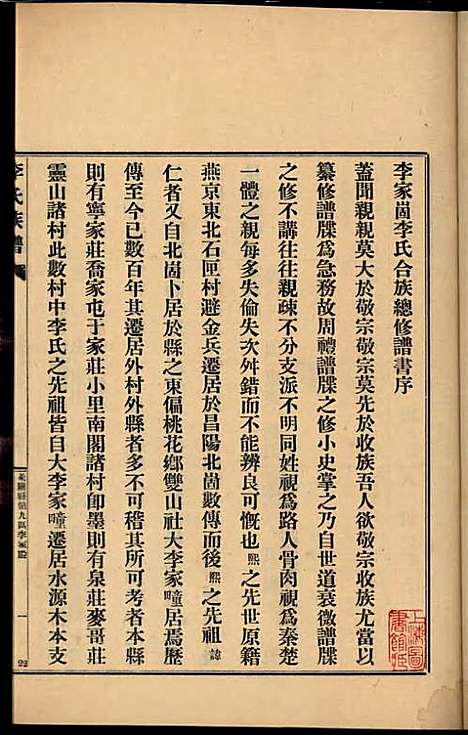 李家崮李氏合族總修譜書序
蓋聞親親莫大於敬宗敬宗莫先於收族吾人欲敬宗收族尤當以
纂修譜牒爲急務故周禮譜牒之修小史掌之乃自世道衰微譜牒
之修不講往往親疎不分支派不明同姓視爲路人骨肉視爲秦楚
一體之親每多失倫失次舛錯而不能辨良可慨也熙之先世原籍
燕京東北石匣村避金兵遷居於昌陽北崮數傳而後熙之先祖諱
仁者又自北崮卜居於縣之東偏桃花鄉雙山社大李家疃居焉歷
傳至今已數百年其遷居外村外縣者多不可稽其所可考者本縣
則有寧家莊喬家屯于家莊小里南閣諸村卽墨則有泉莊麥哥莊
靈山諸村此數村中李氏之先祖皆自大李家疃遷居水源木本支
李氏族譜
一
上海圖
書館藏